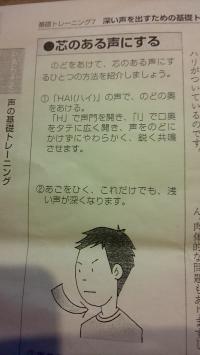 基礎トレーニング7 深い声を出すための基礎ト
●芯のある声にする
のどをあけて、芯のある声にす
るひとつの方法を紹介しましょう。
①「HAI(ハイ)」の声で、のどの奥
をあける。
「H」で声門を開き、「I」で口奥
をタテに広く開き、声をのどに
かけずにやわらかく、鋭く共鳴
させます。
②あごをひく、これだけでも、浅
い声が深くなります。
声の基礎トレーニング